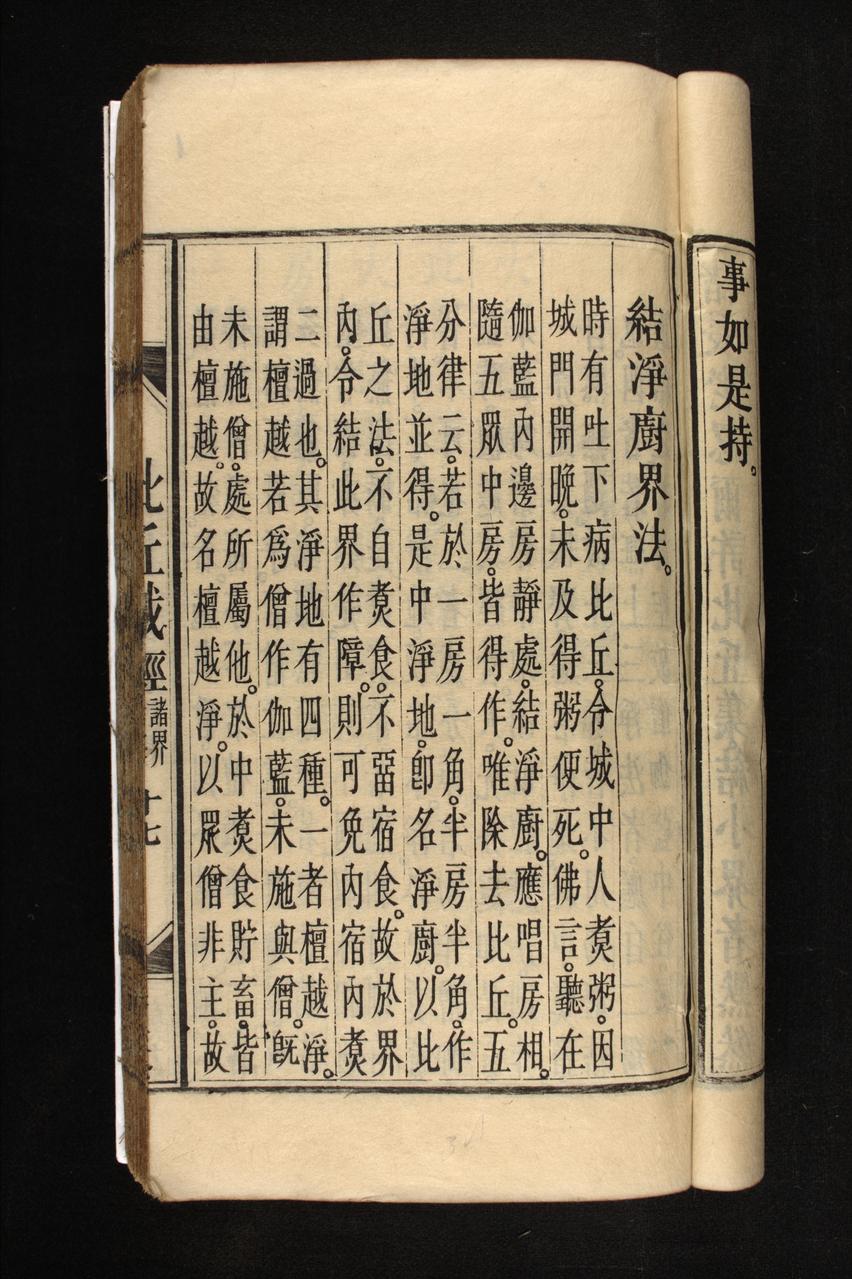 事如是持。
結淨廚界法。
時有吐下病比丘。令城中人煑粥。因
城門開晚。未及得粥便死。佛言。聽在
伽藍內邊房靜處。結淨廚。應唱房相。
隨五眾中房。皆得作。唯除去比丘。五
分律云。若於一房一角。半房半角。作
淨地並得。是中淨地。卽名淨廚。以比
丘之法。不自煑食。不畱宿食。故於界
內。令結此界作障。則可免內宿內煑
二過也。其淨地有四種。一者檀越淨。
謂檀越若爲僧作伽藍。未施與僧。旣
未施僧。處所屬他。於中煑食貯畜。皆
由檀越。故名檀越淨。以眾僧非主。故
比丘戒經 諸界 十七